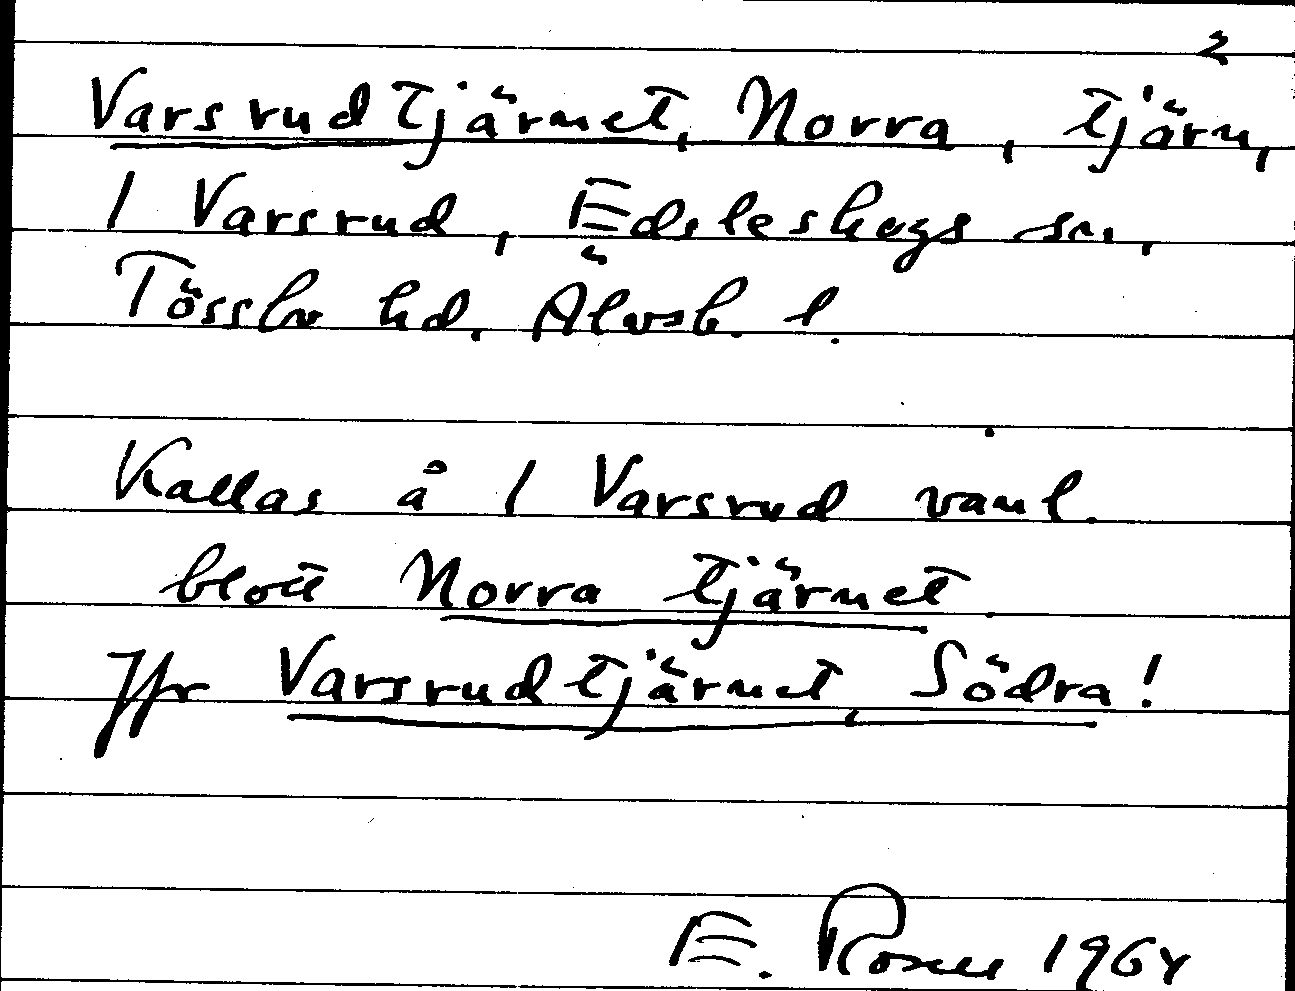 2
Varsrudtjärnet, Norra, tjärn,
1 Varsrud, Edsleskogs sn.,
Tössbo hd. Älvsb. l.
Kallas å 1 Varsrud vanl.
blott Norra tjärnet.
Jfr Varsrudtjärnet, Södra!
E. Rosell 1964